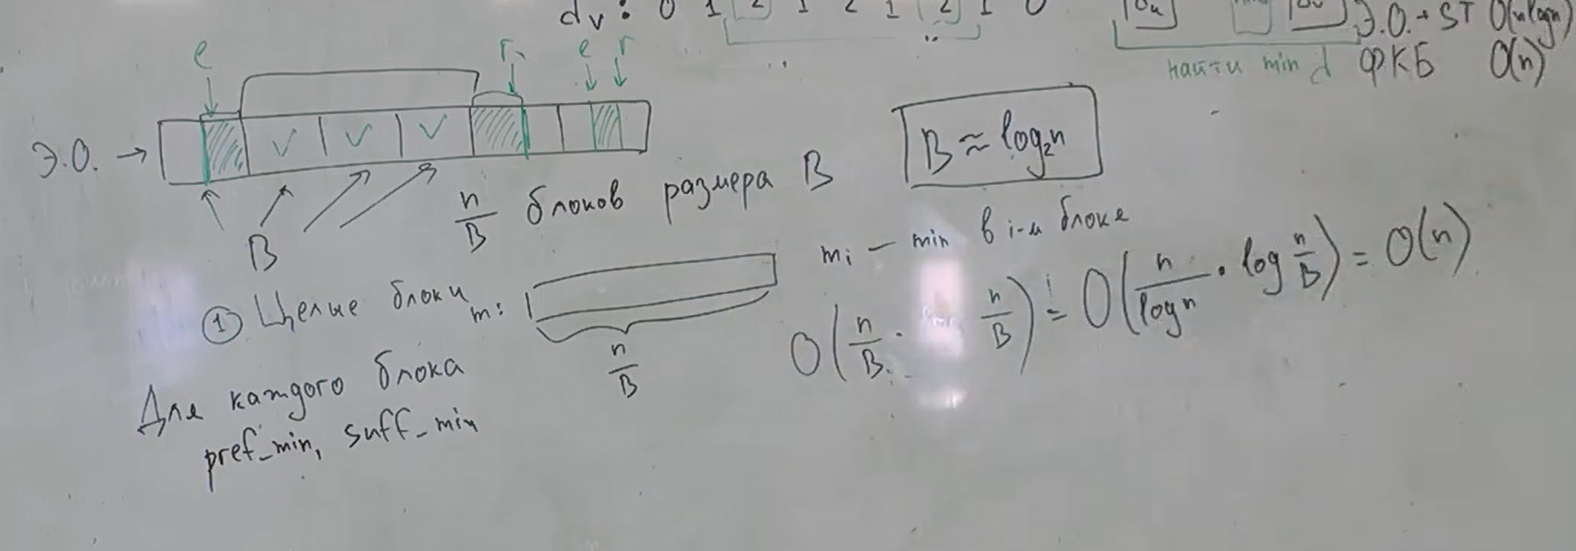 dᵥ: 0 1 2 1 2 1 2 1 0
Э.О. + ST O(n logn)
найти min d ФКБ O(n)
l r l r
Э.О. →
B ≈ log₂n
n/B блоков размера B
B
mᵢ — min в i-м блоке
① Целые блоки m:
n/B
O(n/B · n/B) = O(n/logn · log n/B) = O(n)
Для каждого блока
pref_min, suff_min